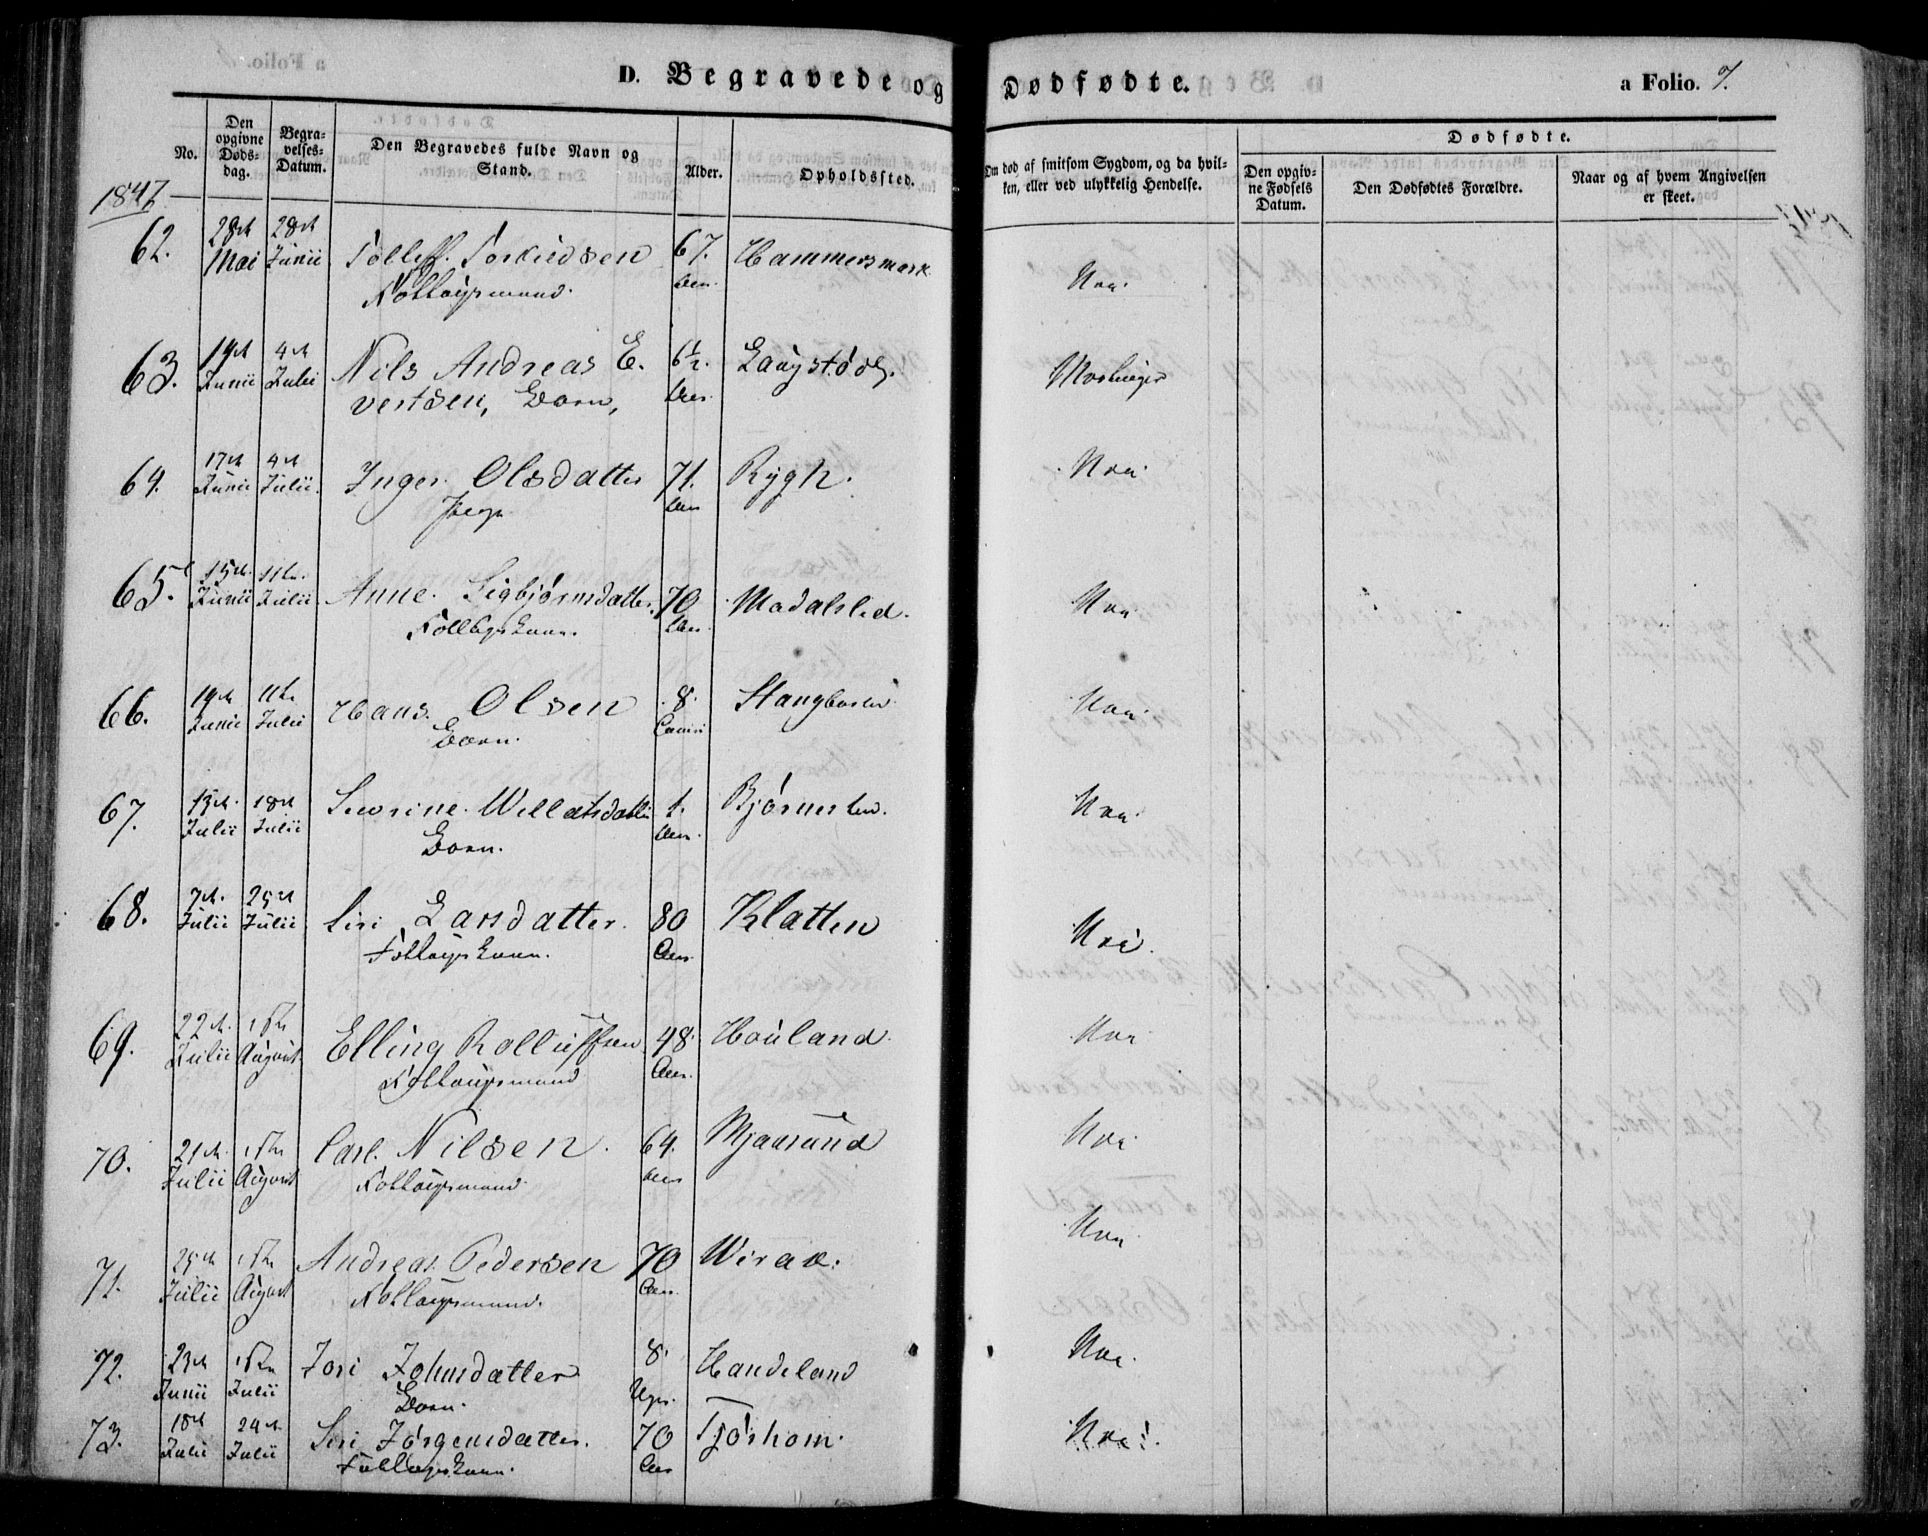 D. Begravede og Dødfødte. a Folio. 7.
No. Den opgivne Døds-dag. Begra-velses-Datum. Den Begravedes fulde Navn og Stand. Alder. Opholdssted. Om død af smitsom Sygdom, og da hvil-ken, eller ved ulykkelig Hendelse. Dødfødte. Den opgiv-ne Fødsels Datum. Den Dødfødtes Forældre. Naar og af hvem Angivelsen er skeet.
1847
62. 28de Mai 28de Junii Tollef. Torkildsen 67. Aar. Hammersmark Nei.
Follaugsmand.
63. 19de Junii 4de Julii Nils Andreas E. 6½. Aar. Laugstød
vertsen, Barn,
64. 17de Junii 4de Julii Inger. Olsdatter 71. Aar Rygh. Nei.
65. 15de Junii 11te Julii Anne. Sigbjørnsdatter. 70 Aar. Modalsled. Nei
Follaugskone.
66. 19de Junii 11te Julii Hans. Olsen 8. Nei
Barn.
67. 13de Julii 18de Julii Sevrine. 1. Aar. Bjørnestad. Nei
Barn.
68. 7de Julii 25de Julii Siri Larsdatter. 80 Aar. Klatten Nei.
Follaugskone.
69. 22de Julii 1ste August Elling Rolluffsen 48. Aar. Houland. Nei
Follaugsmand
70. 21de Julii 1ste August Carl. Nilsen. 64. Aar Mjaasund Nei
Follaugsmand
71. 25de Julii 1ste August Andreas. Pedersen 70 Aar. Wirak. Nei
Follaugsmand.
72. 23de Junii Julii Jori Johnsdatter 8. Uger. Handeland Nei.
Barn.
73. 18de Julii 24de Julii Siri Jørgensdatter. 70 Aar Tjørhom. Nei.
Follaugskone.